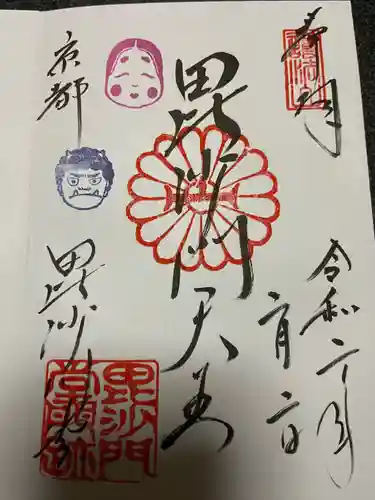 奉拝
毘沙門天王
令和二年
二月二日
京都
毘沙門堂
毘沙門
堂門跡